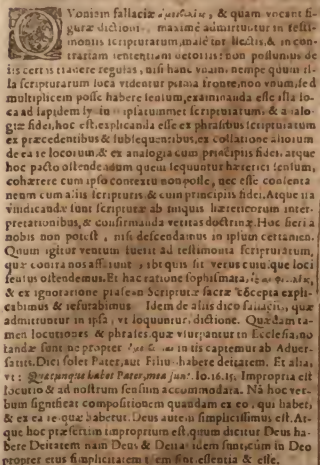 Quoniam fallaciæ & quam vocant figuræ
guræ dictionis, maximè admittuntur in testi-
moniis scripturarum, malè intellectis, & in con-
trariam sententiam detortis: non possumus de
iis certas tradere regulas, nisi hanc vnam, nempe quum il-
la scripturarum loca videntur prima fronte, non vnum, sed
multiplicem posse habere sensum, examinanda esse illa lo-
ca ad lapidem ly ipsammet scripturam, & a alo-
giæ fidei, hoc est, explicanda esse ex phrasibus scripturarum
ex præcedentibus & subsequentibus, ex collatione aliorum
de ea re locorum, & ex analogia cum principiis fidei, atque
hoc pacto ostendendum quem sequuntur hæretici sensum,
cohærere cum ipso contextu non posse, nec esse consenta
neum cum aliis scripturis & cum principiis fidei. Atque ita
vindicandæ sunt scripturæ ab iniquis hæreticorum inter-
pretationibus, & confirmanda veritas doctrinæ. Hoc fieri a
nobis non potest, nisi descendamus in ipsum certamen.
Quum igitur ventum fuerit ad testimonia scripturarum,
quæ contra nos afferunt, ibi quis sit verus cuiusque loci
sensus ostendemus. Et hac ratione sophismata,
& ex ignoratione phraseon Scripturæ sacræ cōcepta expli-
cabimus & refutabimus. Idem de aliis dico fallaciis, quæ
admittuntur in ipsa, vt loquuntur, dictione. Quædam ta-
men locutiones & phrases quæ vsurpantur in Ecclesia, no-
tandæ sunt ne propter in iis captemur ab Aduer-
sariis. Dici solet Pater, aut Filius habere deitatem. Et alia,
vt: Quæcunque habet Pater, mea sunt. Io. 16. 15. Impropria est
locutio & ad nostrum sensum accommodata. Nā hoc ver-
bum significat compositionem quandam ex eo, qui habet,
& ex ea re quæ habetur. Deus autem simplicissimus est. At-
que hoc præsertim improprium est, quum dicitur Deus ha-
bere Deitatem nam Deus & Deitas idem sunt, cùm in Deo
propter eius simplicitatem idem sint, essentia & esse.